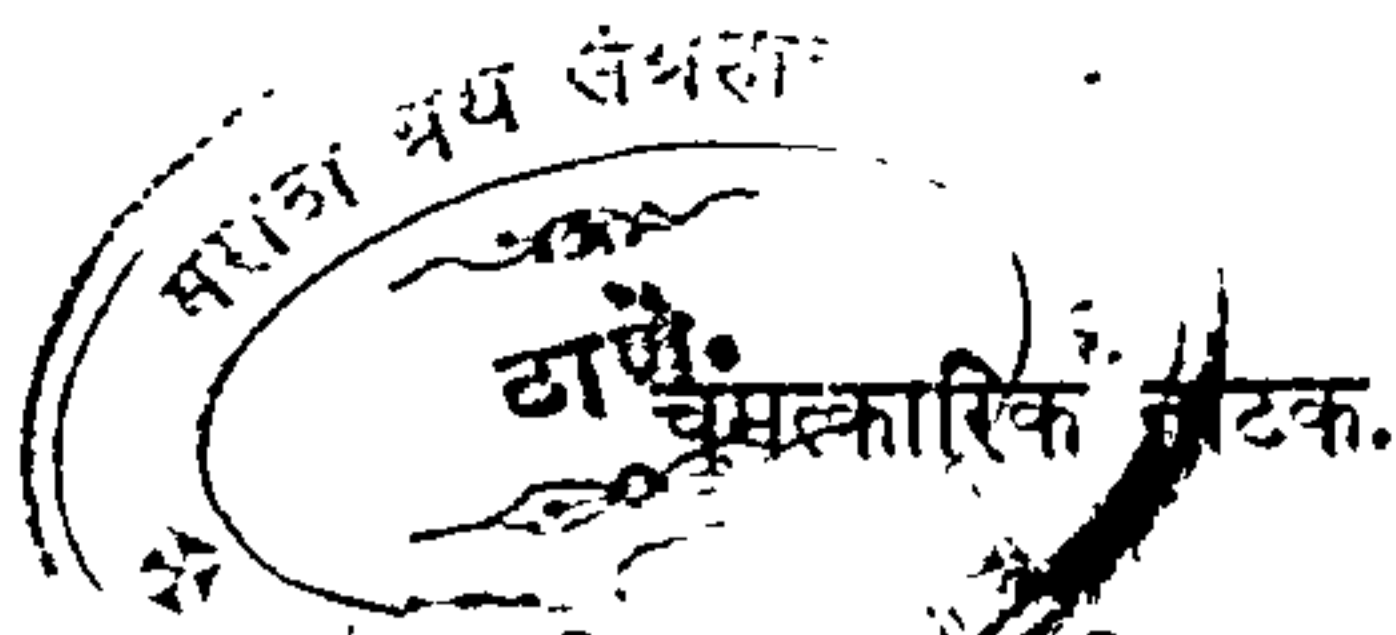 मराठी ग्रंथ संग्रहा
ठाणें.
चमत्कारिक नाटक.